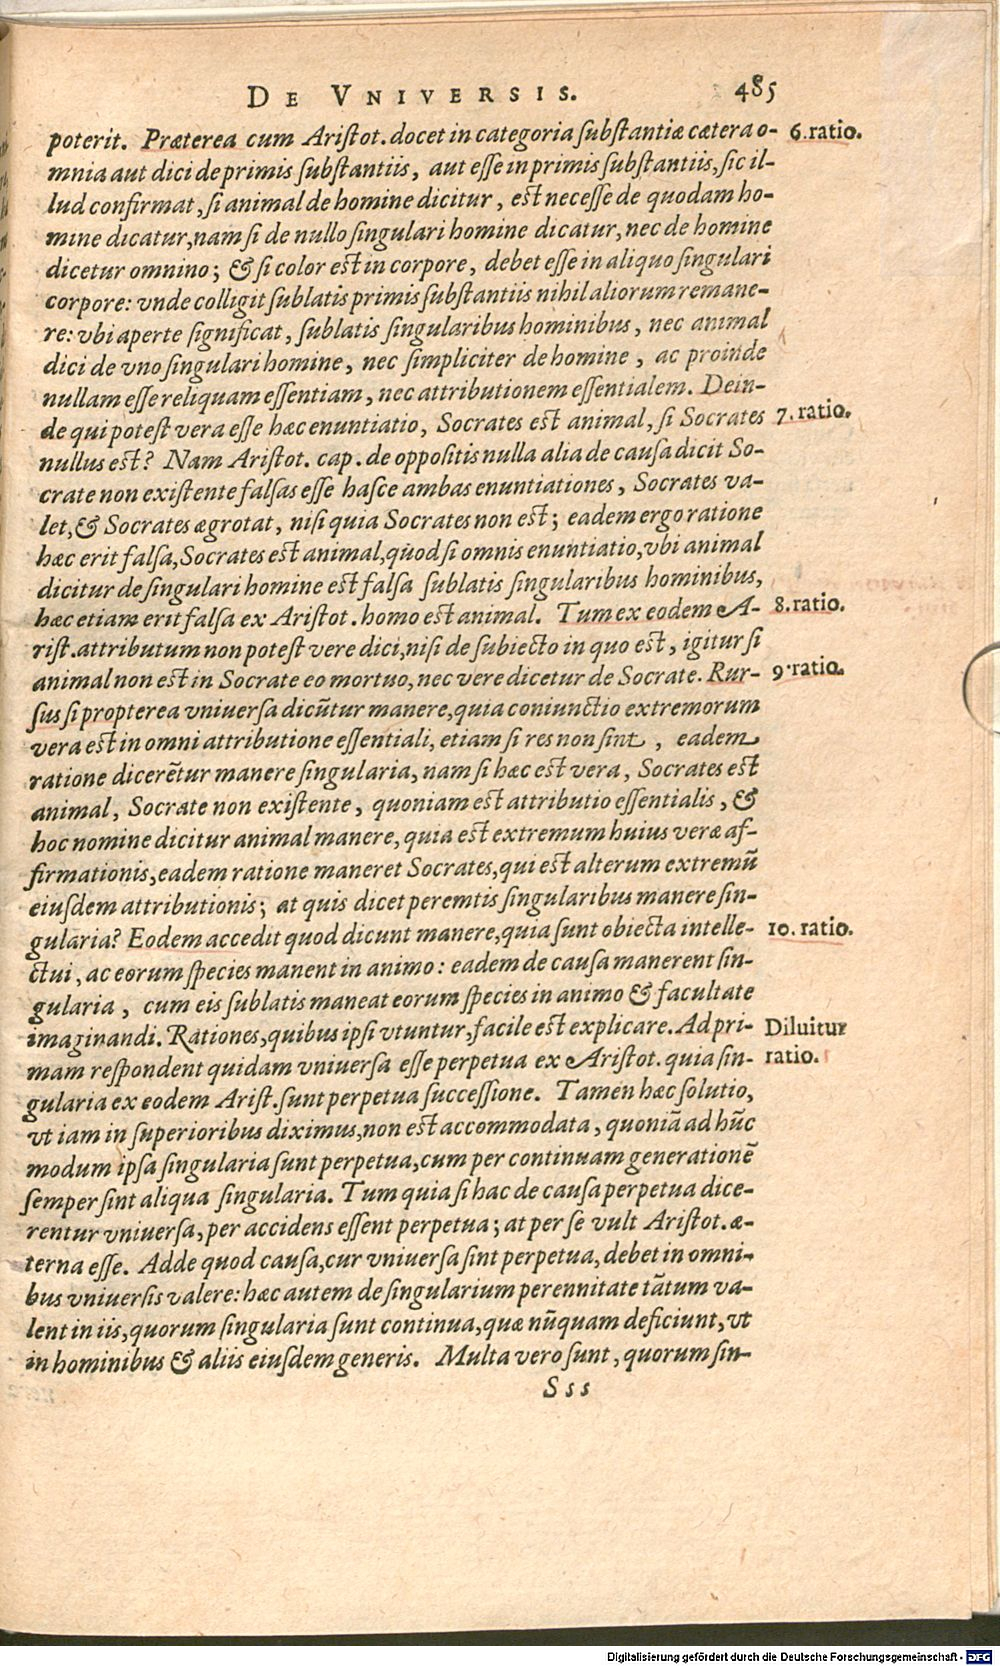 DE VNIVERSIS. 485
poterit. Præterea cum Aristot. docet in categoria substantiæ cætera o- 6. ratio.
mnia aut dici de primis substantiis, aut esse in primis substantiis, sic il-
lud confirmat, si animal de homine dicitur, est necesse de quodam ho-
mine dicatur, nam si de nullo singulari homine dicatur, nec de homine
dicetur omnino; & si color est in corpore, debet esse in aliquo singulari
corpore: vnde colligit sublatis primis substantiis nihil aliorum remane-
re: vbi aperte significat, sublatis singularibus hominibus, nec animal
dici de vno singulari homine, nec simpliciter de homine, ac proinde
nullam esse reliquam essentiam, nec attributionem essentialem. Dein-
de qui potest vera esse hæc enuntiatio, Socrates est animal, si Socrates 7. ratio.
nullus est? Nam Aristot. cap. de oppositis nulla alia de causa dicit So-
crate non existente falsas esse hasce ambas enuntiationes, Socrates va-
let, & Socrates ægrotat, nisi quia Socrates non est; eadem ergo ratione
hæc erit falsa, Socrates est animal, quod si omnis enuntiatio, vbi animal
dicitur de singulari homine est falsa sublatis singularibus hominibus,
hæc etiam erit falsa ex Aristot. homo est animal. Tum ex eodem A- 8. ratio.
rist. attributum non potest vere dici, nisi de subiecto in quo est, igitur si
animal non est in Socrate eo mortuo, nec vere dicetur de Socrate. Rur- 9. ratio.
sus si propterea vniuersa dicũtur manere, quia coniunctio extremorum
vera est in omni attributione essentiali, etiam si res non sint, eadem
ratione dicerẽtur manere singularia, nam si hæc est vera, Socrates est
animal, Socrate non existente, quoniam est attributio essentialis, &
hoc nomine dicitur animal manere, quia est extremum huius veræ af-
firmationis, eadem ratione maneret Socrates, qui est alterum extremũ
eiusdem attributionis; at quis dicet peremtis singularibus manere sin-
gularia? Eodem accedit quod dicunt manere, quia sunt obiecta intelle- 10. ratio.
ctui, ac eorum species manent in animo: eadem de causa manerent sin-
gularia, cum eis sublatis maneat eorum species in animo & facultate
imaginandi. Rationes, quibus ipsi vtuntur, facile est explicare. Ad pri- Diluitur
mam respondent quidam vniuersa esse perpetua ex Aristot. quia sin- ratio.
gularia ex eodem Arist. sunt perpetua successione. Tamen hæc solutio,
vt iam in superioribus diximus, non est accommodata, quoniã ad hũc
modum ipsa singularia sunt perpetua, cum per continuam generationẽ
semper sint aliqua singularia. Tum quia si hac de causa perpetua dice-
rentur vniuersa, per accidens essent perpetua; at per se vult Aristot. æ-
terna esse. Adde quod causa, cur vniuersa sint perpetua, debet in omni-
bus vniuersis valere: hæc autem de singularium perennitate tãtum va-
lent in iis, quorum singularia sunt continua, quæ nũquam deficiunt, vt
in hominibus & aliis eiusdem generis. Multa vero sunt, quorum sin-
Sss
Digitalisierung gefördert durch die Deutsche Forschungsgemeinschaft - DFG